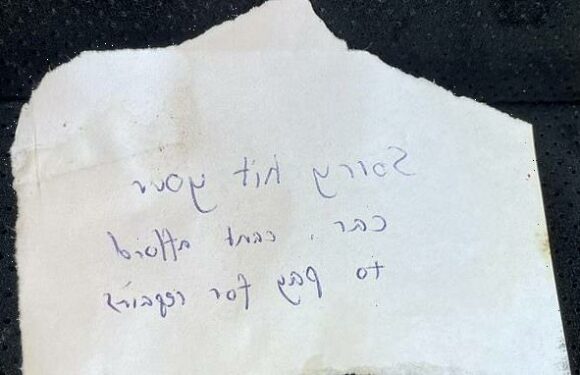 Sorry hit your
car, cant afford
to pay for repairs